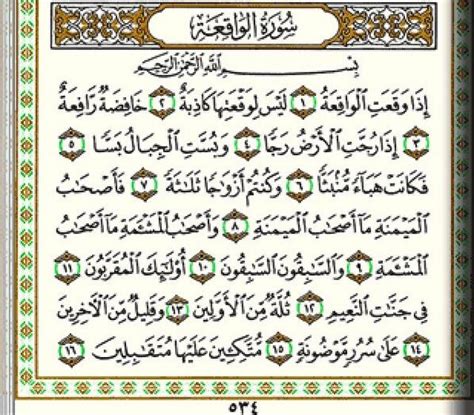 سُورَةُ الْوَاقِعَةِ
بِسْمِ اللَّهِ الرَّحْمَٰنِ الرَّحِيمِ
إِذَا وَقَعَتِ الْوَاقِعَةُ ١ لَيْسَ لِوَقْعَتِهَا كَاذِبَةٌ ٢ خَافِضَةٌ رَّافِعَةٌ
٣ إِذَا رُجَّتِ الْأَرْضُ رَجًّا ٤ وَبُسَّتِ الْجِبَالُ بَسًّا ٥
فَكَانَتْ هَبَاءً مُّنْبَثًّا ٦ وَكُنتُمْ أَزْوَاجًا ثَلَاثَةً ٧ فَأَصْحَٰبُ
الْمَيْمَنَةِ مَا أَصْحَٰبُ الْمَيْمَنَةِ ٨ وَأَصْحَٰبُ الْمَشْـَٔمَةِ مَا أَصْحَٰبُ
الْمَشْـَٔمَةِ ٩ وَالسَّٰبِقُونَ السَّٰبِقُونَ ١٠ أُوْلَٰئِكَ الْمُقَرَّبُونَ ١١
فِي جَنَّٰتِ النَّعِيمِ ١٢ ثُلَّةٌ مِّنَ الْأَوَّلِينَ ١٣ وَقَلِيلٌ مِّنَ الْآخِرِينَ
١٤ عَلَىٰ سُرُرٍ مَّوْضُونَةٍ ١٥ مُّتَّكِـِٔينَ عَلَيْهَا مُتَقَٰبِلِينَ ١٦
٥٣٤